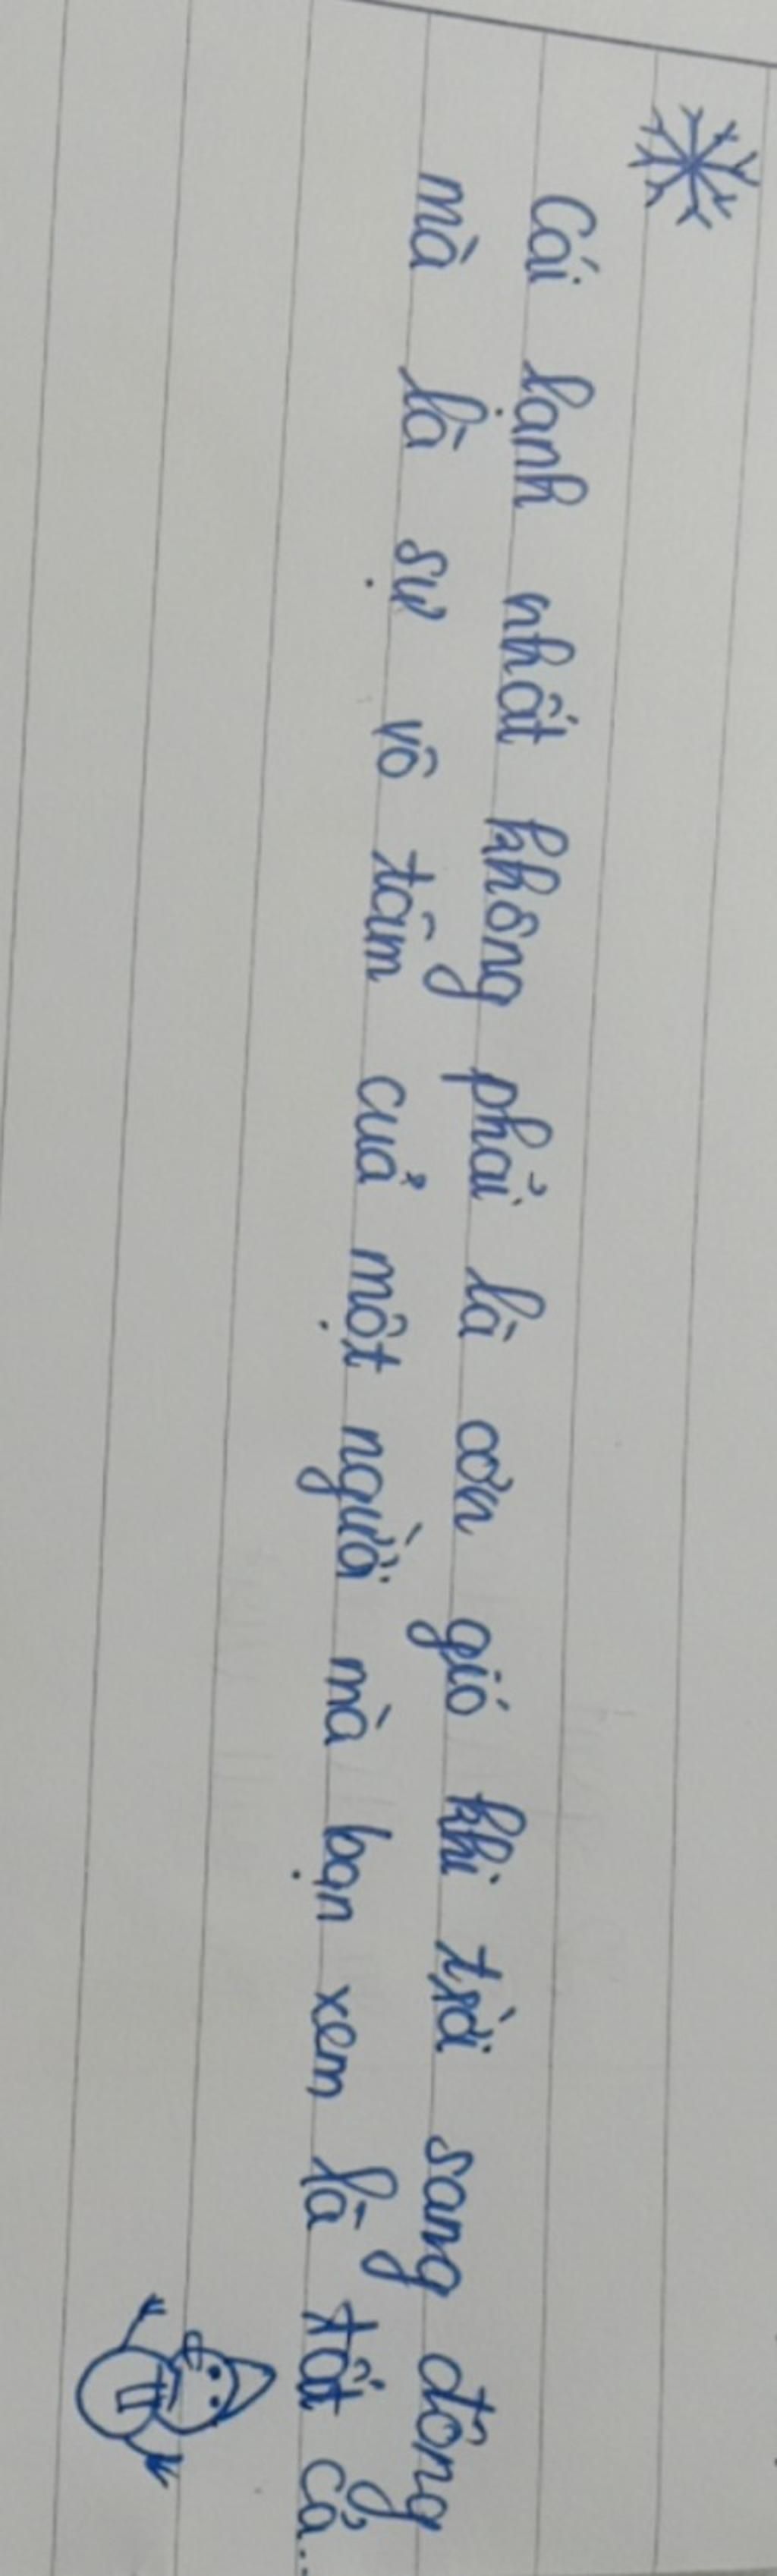 Cái lạnh nhất không phải là cơn gió khi trời sang đông
mà là sự vô tâm của một người mà bạn xem là tất cả...